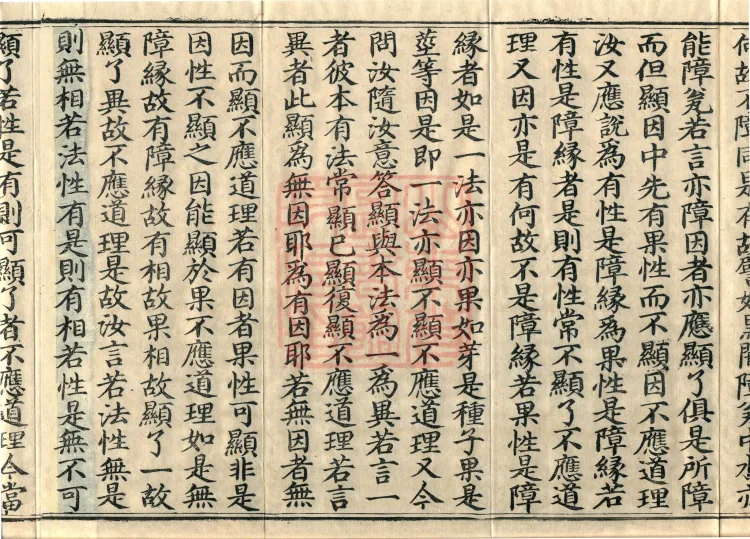 何故不障同是有故
能障瓮若言亦障因者亦應顯了俱是所障
而但顯因中先有果性而不顯因不應道理
汝又應說為有性是障緣為果性是障緣若
有性是障緣者是則有性常不顯了不應道
理又因亦是有何故不是障緣若果性是障
緣者如是一法亦因亦果如芽是種子果是
莖等因是即一法亦顯不顯不應道理又今
問汝隨汝意答顯與本法為一為異若言一
者彼本有法常顯已顯復顯不應道理若言
異者此顯為無因耶為有因耶若無因者無
因而顯不應道理若有因者果性可顯非是
因性不顯之因能顯於果不應道理如是無
障緣故有障緣故有相故果相故顯了一故
顯了異故不應道理是故汝言若法性無是
則無相若法性有是則有相若性是無不可
顯了若性是有則可顯了者不應道理今當